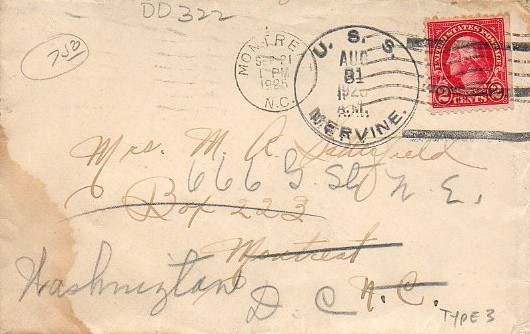 DD 322
750
MONTRE
SEP 21
1 PM
1925
N.C.
U. S. S.
AUG
31
1925
A.M.
MERVINE.
UNITED STATES POSTAGE
2 CENTS 2
Mrs. M. A.
666 G St. N. E.
Box 223
Montreat
Washington
D C
N. C.
TYPE 3